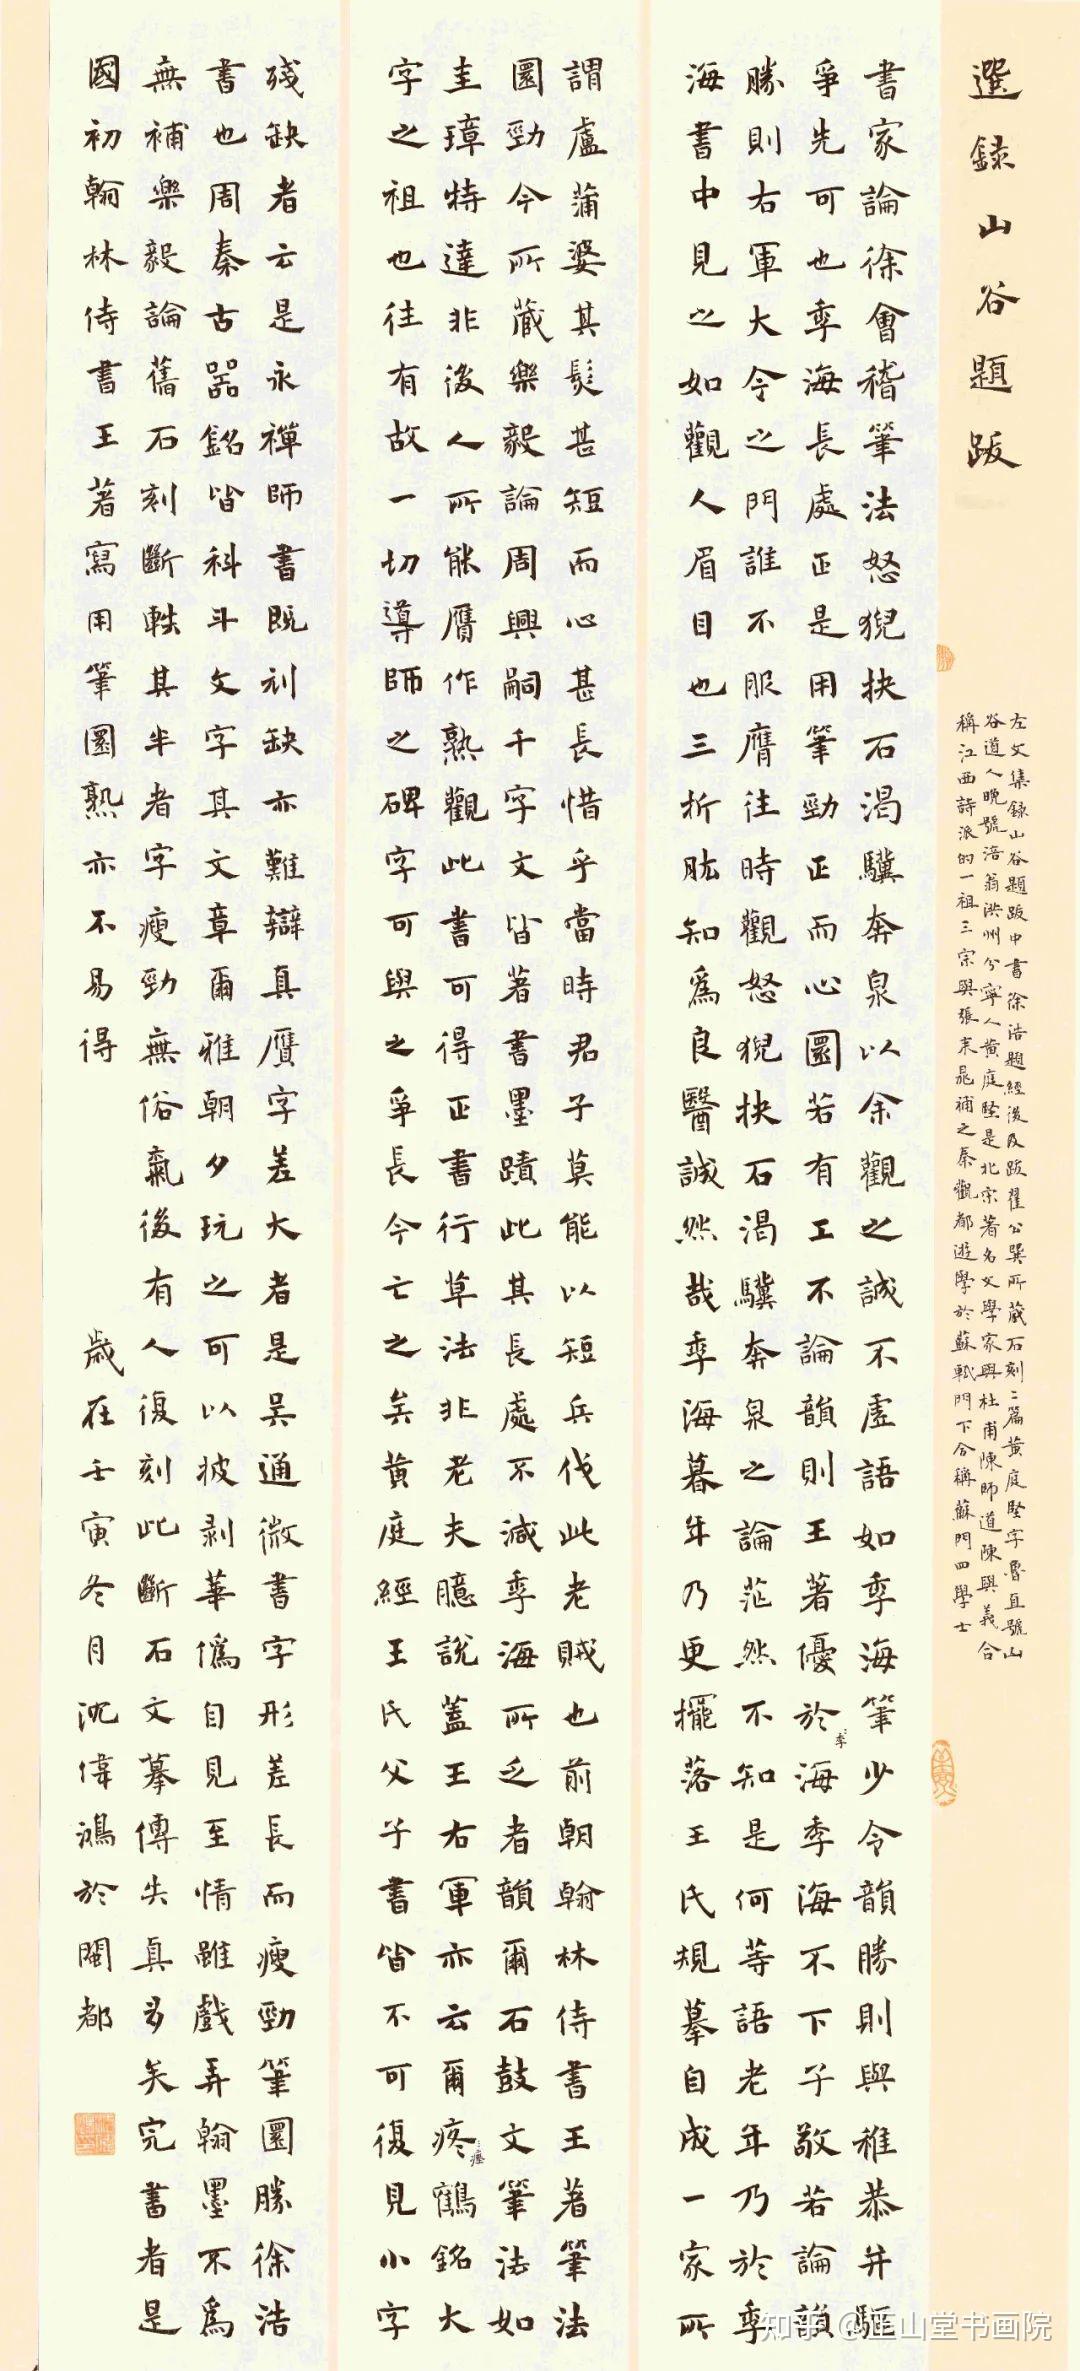 選錄山谷題跋
左文集錄山谷題跋中書徐浩題經後及跋翟公巽所藏石刻二篇黃庭堅字魯直號山
谷道人晚號涪翁洪州分寧人黃庭堅是北宋著名文學家與杜甫陳師道陳與義合
稱江西詩派的一祖三宗與張耒晁補之秦觀都遊學於蘇軾門下合稱蘇門四學士
書家論徐會稽筆法怒猊抉石渴驥奔泉以余觀之誠不虛語如季海筆少令韻勝則與稚恭并驅
爭先可也季海長處正是用筆勁正而心圓若有工不論韻則王著優於海季海不下子敬若論韻
季
勝則右軍大令之門誰不服膺往時觀怒猊抉石渴驥奔泉之論茫然不知是何等語老年乃於季
海書中見之如觀人眉目也三折肱知為良醫誠然哉季海暮年乃更擺落王氏規摹自成一家所
謂盧蒲嫳其髮甚短而心甚長惜乎當時君子莫能以短兵伐此老賊也前朝翰林侍書王著筆法
圓勁今所藏樂毅論周興嗣千字文皆著書墨蹟此其長處不減季海所乏者韻爾石鼓文筆法如
圭璋特達非後人所能贋作熟觀此書可得正書行草法非老夫臆說蓋王右軍亦云爾疼鶴銘大
瘞
字之祖也往有故一切導師之碑字可與之爭長今亡之矣黃庭經王氏父子書皆不可復見小字
殘缺者云是永禪師書既刓缺亦難辯真贋字差大者是吳通微書字形差長而瘦勁筆圓勝徐浩
書也周秦古器銘皆科斗文字其文章爾雅朝夕玩之可以披剥華僞自見至情雖戲弄翰墨不為
無補樂毅論舊石刻斷軼其半者字瘦勁無俗氣後有人復刻此斷石文摹傳失真多矣完書者是
國初翰林侍書王著寫用筆圓熟亦不易得
歲在壬寅冬月沈偉鴻於閩都
知乎 @正山堂书画院